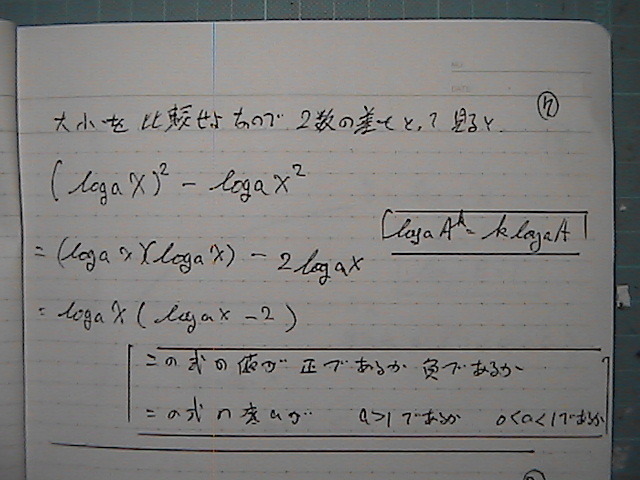 ⑦
大小を比較せよなので2数の差をとって見ると
(logaX)² - logaX²
= (logax)(logax) - 2logax
logaAᵏ = klogaA
= logax(logax - 2)
この式の値が正であるか負であるか
この式の底aが a>1であるか 0<a<1であるか